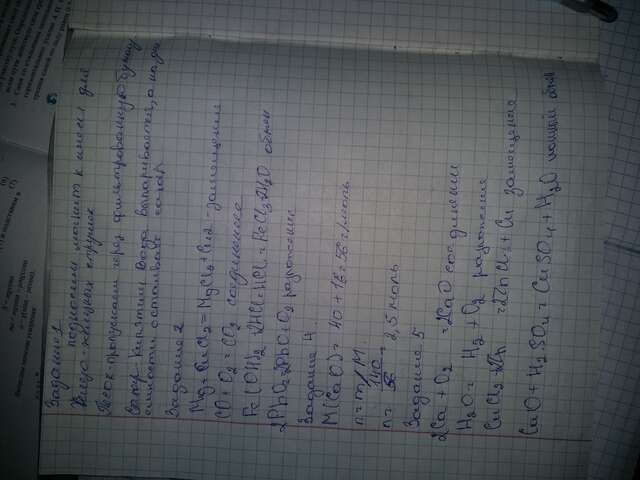 Задание 1
подносим магнит к смеси для
Железо - железных стружек
Песок - пропускаем через фильтрованную бумагу
Сахар - Кипятим вода выпаривается, а на дне
емкости остаивает сахар
Задание 2
Mg + CuCl2 = MgCl2 + Cu2 - замещение
CO + O2 = CO2 соединение
Fe(OH)2 + 2HCl = FeCl3 + 2H2O обмен
2PbO2 = 2PbO + O2 разложение
Задание 4.
M(CaO) = 40 + 16 = 56 г/моль
n = m/M
n = 140/56 = 2,5 моль
Задание 5
2Ca + O2 = 2CaO соединение
H2O = H2 + O2 разложение
CuCl2 + Zn = ZnCl2 + Cu замещение
CuO + H2SO4 = CuSO4 + H2O ионный обмен